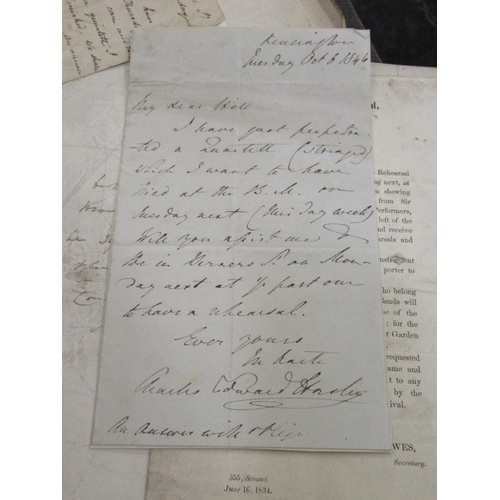 Kensington
Tuesday Oct 6 1846
My dear Hill
I have just perpetra
ted a Quartett (stringed)
which I want to have
tried at the B. M. on
Tuesday next (this day week)
Will you assist me
in Berners St. on Mon-
day next at ½ past one
to have a rehearsal.
Ever yours
In haste
Charles Edward Horsley
An answer will oblige
Rehearsal
ng next, at
you shewing
from Sir
Performers,
left of the
and receive
earsals and
instrument
porter to
who belong
Bands will
se of the
for the
t Garden
requested
ame and
t to any
by the
ival.
WES,
Secretary.
355, Strand.
June 16, 1834.